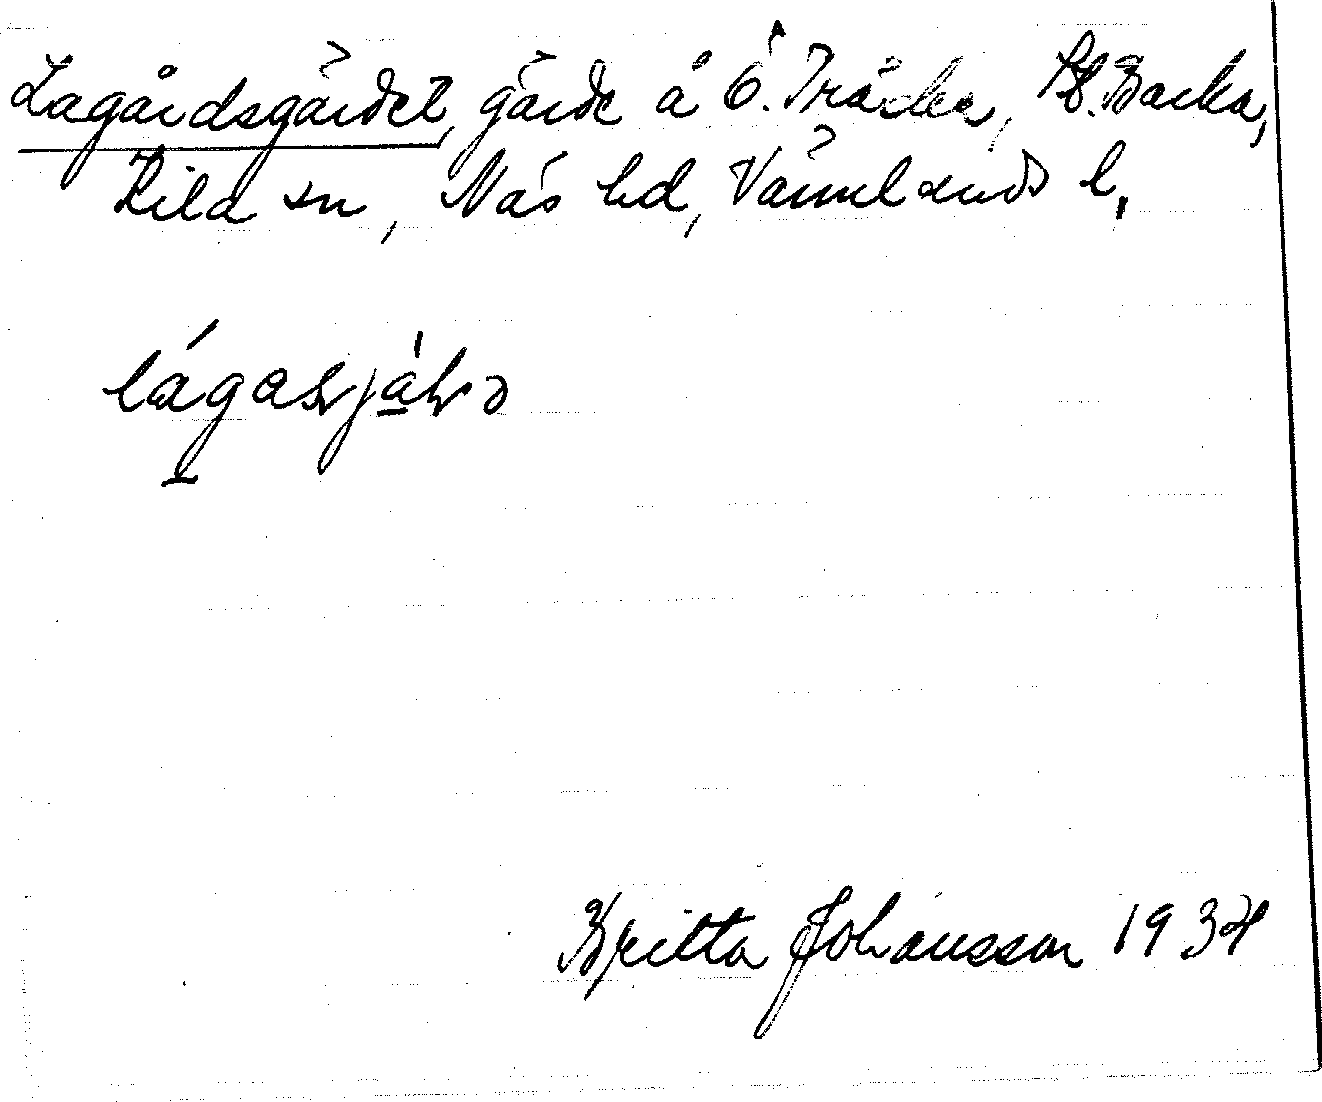 Lagårdsgärdet, gärde å Ö. Träcke, St. Backa,
Kila sn, Näs hd, Värmlands l.
Britta Johansson 1934